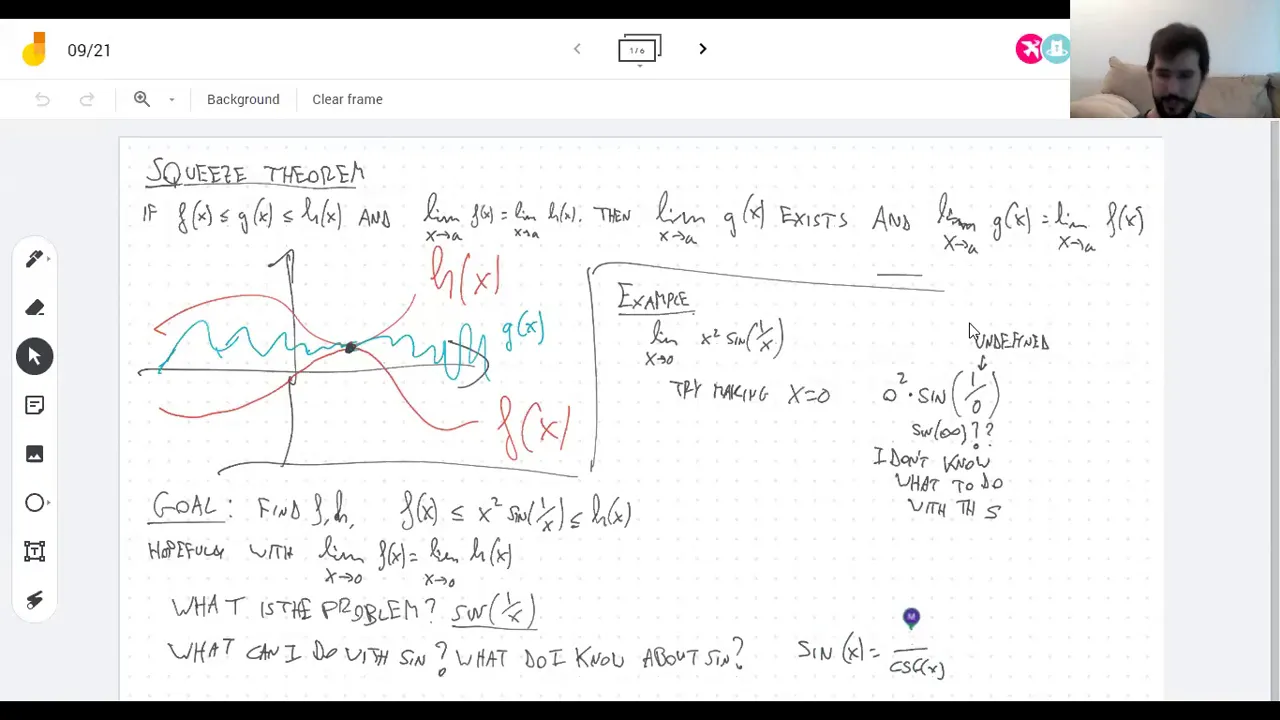 09/21
1/6
Background
Clear frame
SQUEEZE THEOREM
IF f(x) ≤ g(x) ≤ h(x) AND lim x→a f(x) = lim x→a h(x). THEN lim x→a g(x) EXISTS AND lim x→a g(x) = lim x→a f(x)
h(x)
g(x)
f(x)
EXAMPLE
lim x→0 x² sin(1/x)
TRY MAKING X=0
UNDEFINED
0² · SIN(1/0)
SIN(∞)??
I DON'T KNOW
WHAT TO DO
WITH TH S
GOAL: FIND f, h, f(x) ≤ x² sin(1/x) ≤ h(x)
HOPEFULLY WITH lim x→0 f(x) = lim x→0 h(x)
WHAT IS THE PROBLEM? SIN(1/x)
WHAT CAN I DO WITH SIN? WHAT DO I KNOW ABOUT SIN?
SIN(x) = —/CSC(x)
M